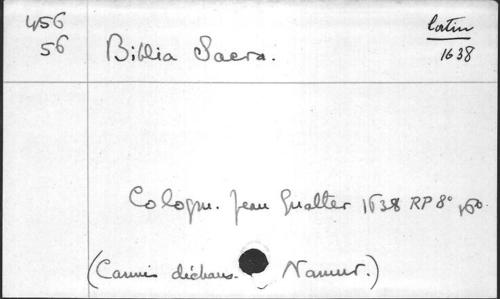 456
56
Biblia Sacra.
latin
1638
Cologn. Jean Gualter 1638 RP 8°
(Carmes déchaus. Namur.)